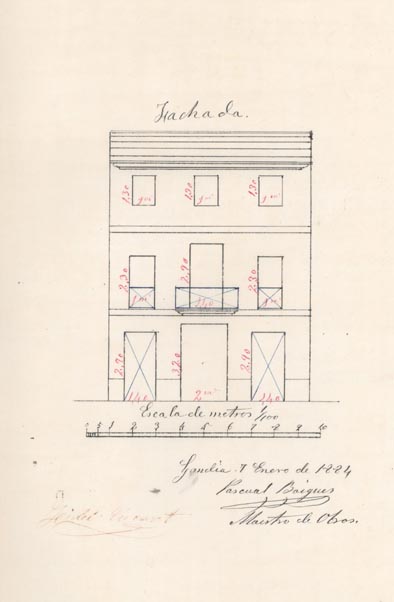 Fachada.
1,30 1m 1,30 1m 1,30 1m
2,30 1m 2,90 1,50 2,30 1m
2,90 1,40 3,20 2m 2,90 1,40
Escala de metros 1/100
1 2 3 4 5 6 7 8 9 10
Gandia 7 Enero de 1884
Pascual Baigues
Maestro de Obras.